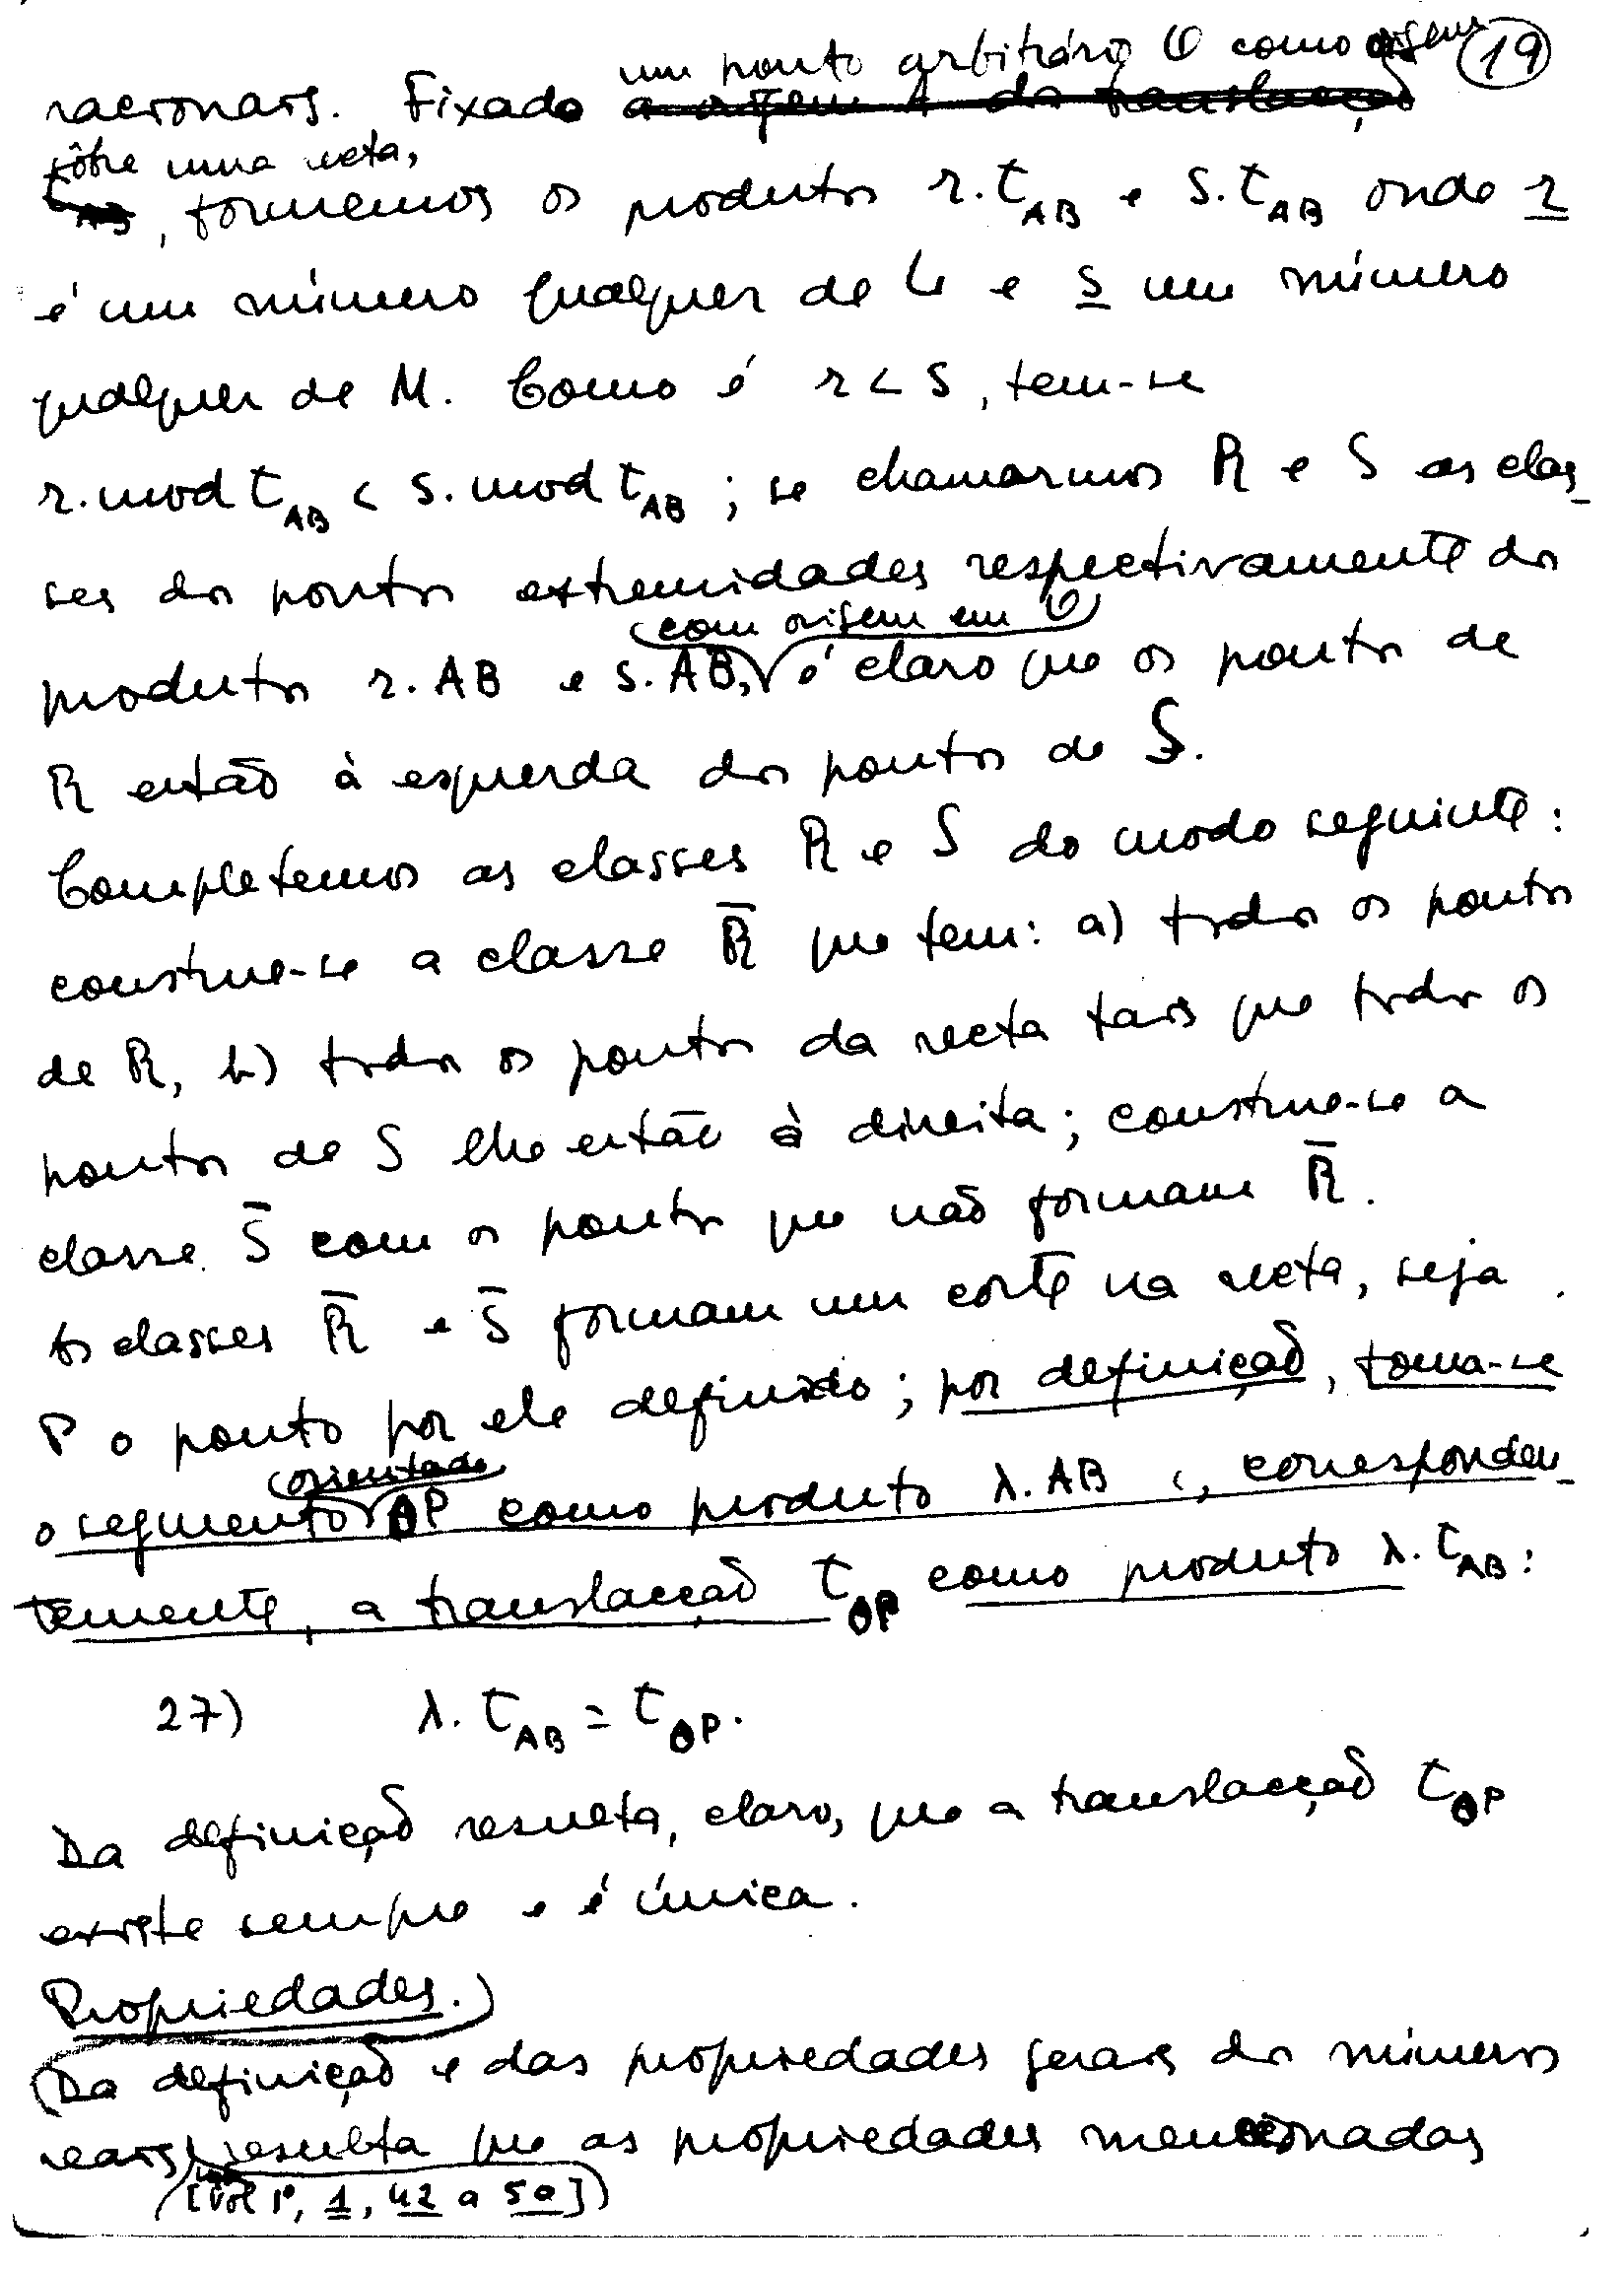 um ponto arbitrário O como origem (19)
racionais. Fixado a origem A da translacção
sôbre uma recta,
t_AB, formemos os produtos r.t_AB e s.t_AB onde r
é um número qualquer de L e s um número
qualquer de M. Como é r < s, tem-se
r.mod t_AB < s.mod t_AB ; se chamarmos R e S as clas-
ses dos pontos extremidades respectivamente dos
com origem em O
produtos r.AB e s.AB, é claro que os pontos de
R estão à esquerda dos pontos de S.
Completemos as classes R e S do modo seguinte:
construe-se a classe R̄ que tem: a) todos os pontos
de R, b) todos os pontos da recta tais que todos os
pontos de S lhe estão à direita; construe-se a
classe S̄ com os pontos que não formam R̄.
As classes R̄ e S̄ formam um corte na recta, seja
P o ponto por ele definido; por definição, toma-se
orientado
o segmento OP como produto λ.AB e, corresponden-
temente, a translacção t_OP como produto λ.t_AB:
27) λ.t_AB = t_OP.
Da definição resulta, claro, que a translacção t_OP
existe sempre e é única.
Propriedades.
Da definição e das propriedades gerais dos números
reais resulta que as propriedades mencionadas
[vol 1º, 1, 42 a 50]